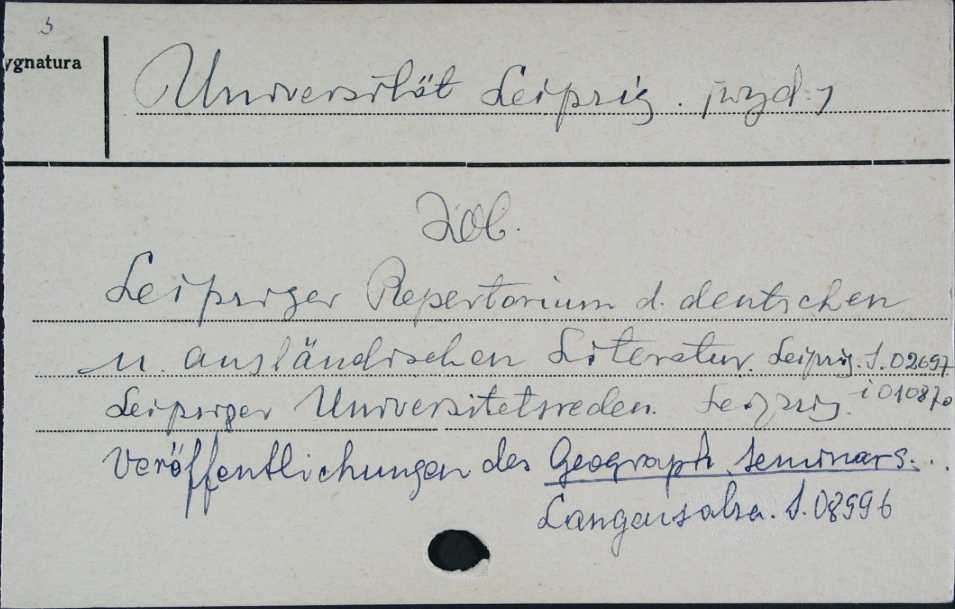 ygnatura
Universität Leipzig. [wyd.]
Zob.
Leipziger Repertorium d. deutschen
u. ausländischen Literatur. Leipzig. S.02697
i 010870
Leipziger Universitetsreden. Leipzig.
Veröffentlichungen des Geograph. Seminars...
Langensalza. S.08996